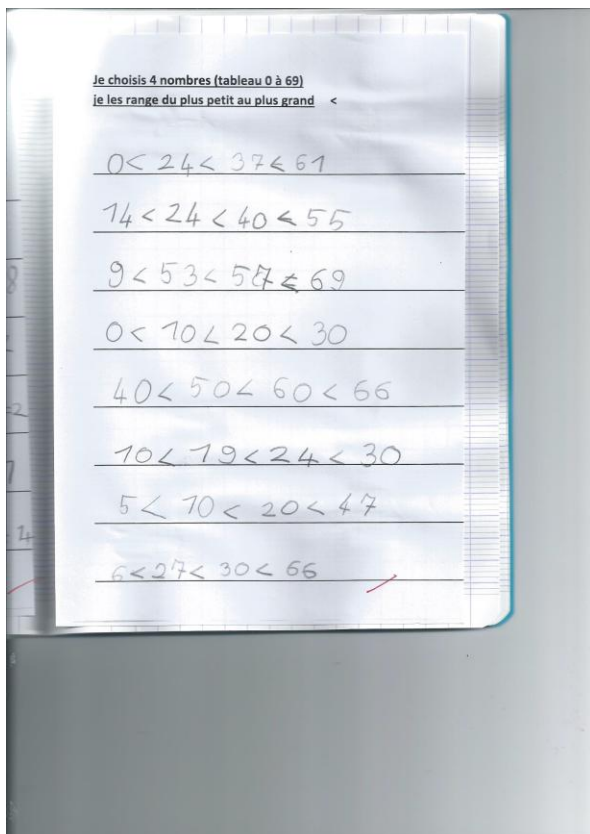 Je choisis 4 nombres (tableau 0 à 69)
je les range du plus petit au plus grand <
0 < 24 < 37 < 61
14 < 24 < 40 < 55
9 < 53 < 57 < 69
0 < 10 < 20 < 30
40 < 50 < 60 < 66
10 < 19 < 24 < 30
5 < 10 < 20 < 47
6 < 27 < 30 < 66